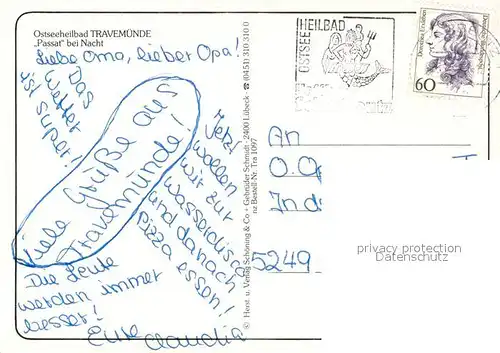 Ostseeheilbad TRAVEMÜNDE
„Passat" bei Nacht
Liebe Oma, lieber Opa!
Das
Wetter
ist super!
Viele Grüße aus
Travemünde!
Jetzt
wollen
wir zur
und danach
Pizza essen!
Die Leute
werden immer
besser!
Eure Claudia
© Herst. u. Verlag Schöning & Co + Gebrüder Schmidt · 2400 Lübeck · ☎ (0451) 310 310 0
Bestell-Nr. Tra 1097
OSTSEE
HEILBAD
60
An
O.O
Ind
5249
privacy protection
Datenschutz